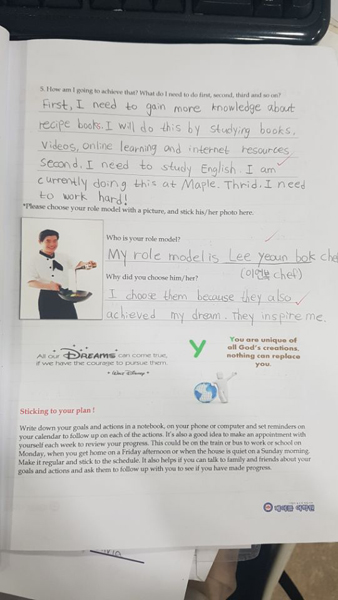 5. How am I going to achieve that? What do I need to do first, second, third and so on?
First, I need to gain more knowledge about
recipe books. I will do this by studying books,
videos, online learning and internet resources.
Second, I need to study English. I am
currently doing this at Maple. Thrid, I need
to work hard!
*Please choose your role model with a picture, and stick his/her photo here.
Who is your role model?
My role model is Lee yeoun bok che
(이연복 chef)
Why did you choose him/her?
I choose them because they also
achieved my dream. They inspire me.
All our DREAMS can come true,
if we have the courage to pursue them.
* WALT DISNEY *
Y
You are unique of
all God's creations,
nothing can replace
you.
Sticking to your plan !
Write down your goals and actions in a notebook, on your phone or computer and set reminders on
your calendar to follow up on each of the actions. It's also a good idea to make an appointment with
yourself each week to review your progress. This could be on the train or bus to work or school on
Monday, when you get home on a Friday afternoon or when the house is quiet on a Sunday morning.
Make it regular and stick to the schedule. It also helps if you can talk to family and friends about your
goals and actions and ask them to follow up with you to see if you have made progress.
메이플 어학원